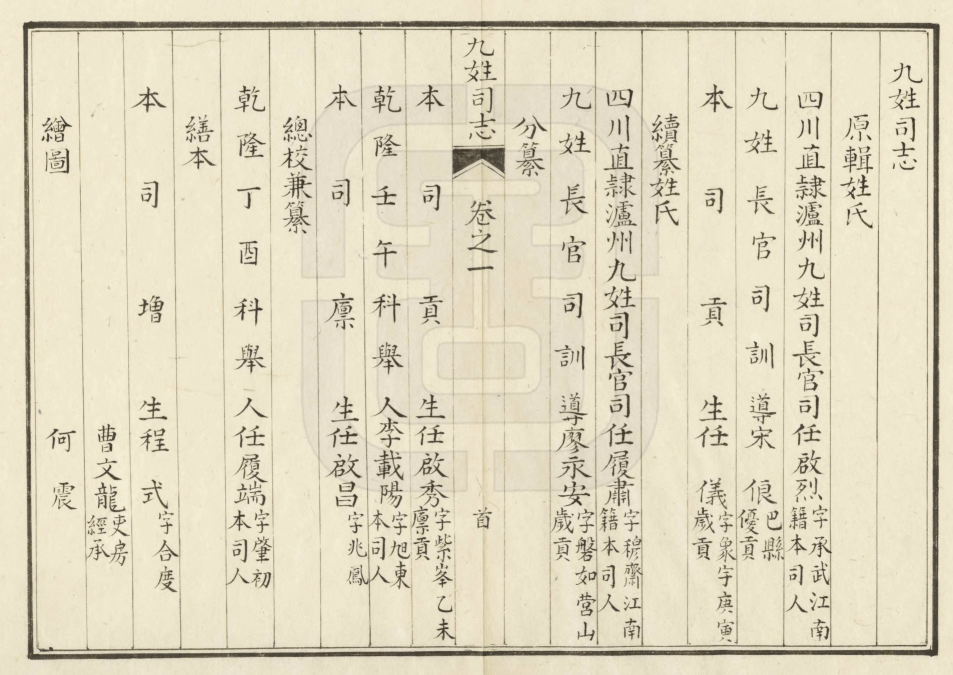 九姓司志
原輯姓氏
四川直隸瀘州九姓司長官司任啟烈字承武江南籍本司人
九姓長官司訓導宋俍巴縣優貢
本司貢生任儀字象字庚寅歲貢
續纂姓氏
四川直隸瀘州九姓司長官司任履肅字穆齋江南籍本司人
九姓長官司訓導廖永安字磐如營山歲貢
分纂
九姓司志 卷之一 首
本司貢生任啟秀字紫峯乙未廪貢
乾隆壬午科舉人李載陽字旭東本司人
本司廪生任啟昌字兆鳳
總校兼纂
乾隆丁酉科舉人任履端字肇初本司人
繕本
本司增生程式字合度
曹文龍吏房經承
繪圖
何震